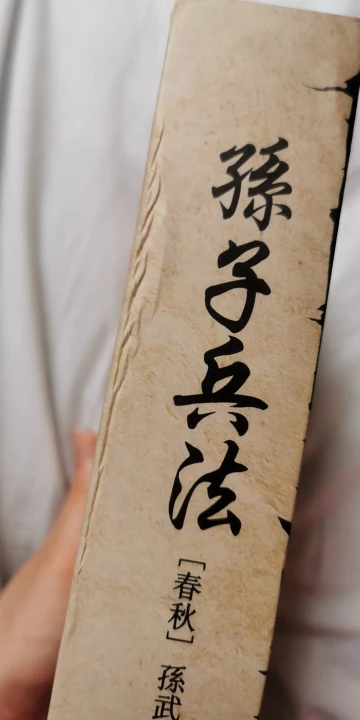 孫子兵法
[春秋] 孫武